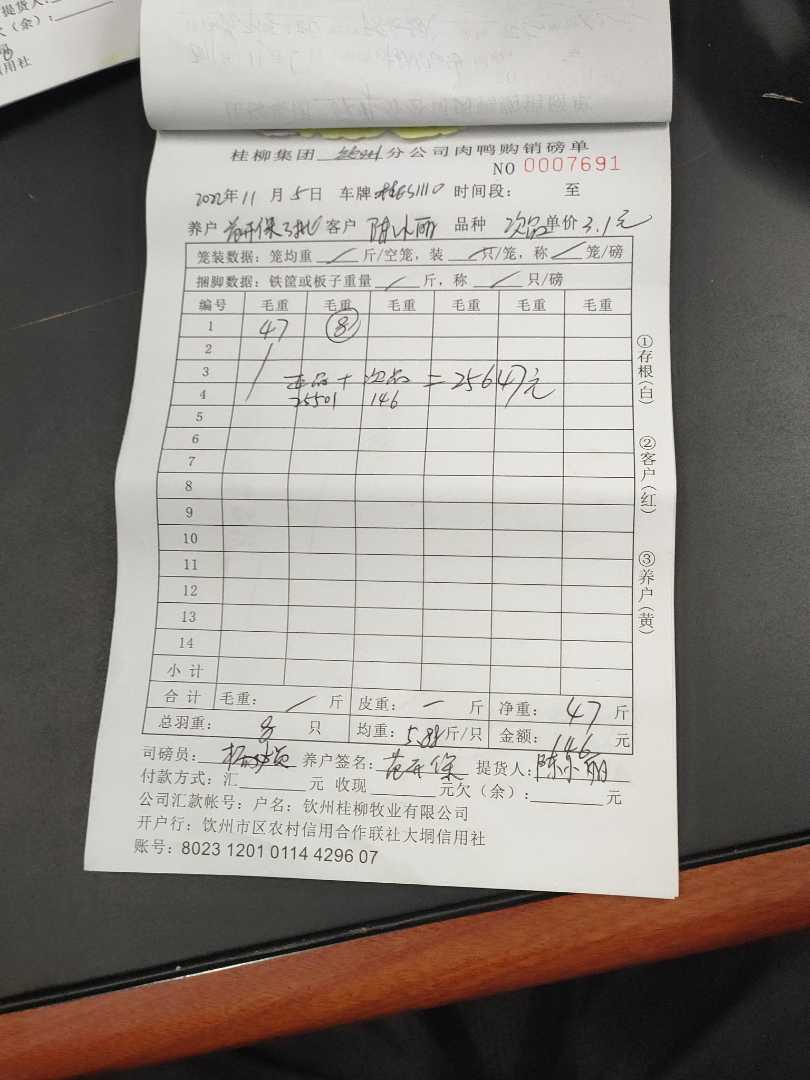 提货人:
欠(余):
用社
桂柳集团 钦州 分公司肉鸭购销磅单
NO 0007691
2022年11月5日 车牌 时间段: 至
养户 客户 陈小丽 品种 次品 单价 3.1元
笼装数据: 笼均重 / 斤/空笼, 装 / 只/笼, 称 / 笼/磅
捆脚数据: 铁筐或板子重量 / 斤, 称 / 只/磅
编号 毛重 毛重 毛重 毛重 毛重 毛重
1 47 8
2
3
正品 + 次品 = 25647元
4
25501 146
5
6
7
8
9
10
11
12
13
14
小计
合计 毛重: / 斤 皮重: 一 斤 净重: 47 斤
总羽重: 8 只 均重: 5.88斤/只 金额: 146 元
司磅员: 养户签名: 范开保 提货人: 陈小丽
付款方式: 汇 元 收现 元欠(余): 元
公司汇款帐号: 户名: 钦州桂柳牧业有限公司
开户行: 钦州市区农村信用合作联社大垌信用社
账号: 8023 1201 0114 4296 07
①存根(白)
②客户(红)
③养户(黄)